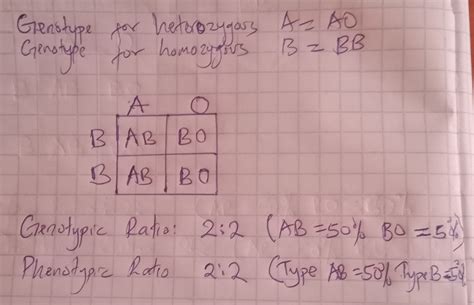 Genotype for heterozygous A = AO
Genotype for homozygous B = BB
A O
B AB BO
B AB BO
Genotypic Ratio: 2:2 (AB = 50% BO = 50%)
Phenotypic Ratio 2:2 (Type AB = 50% Type B = 50%